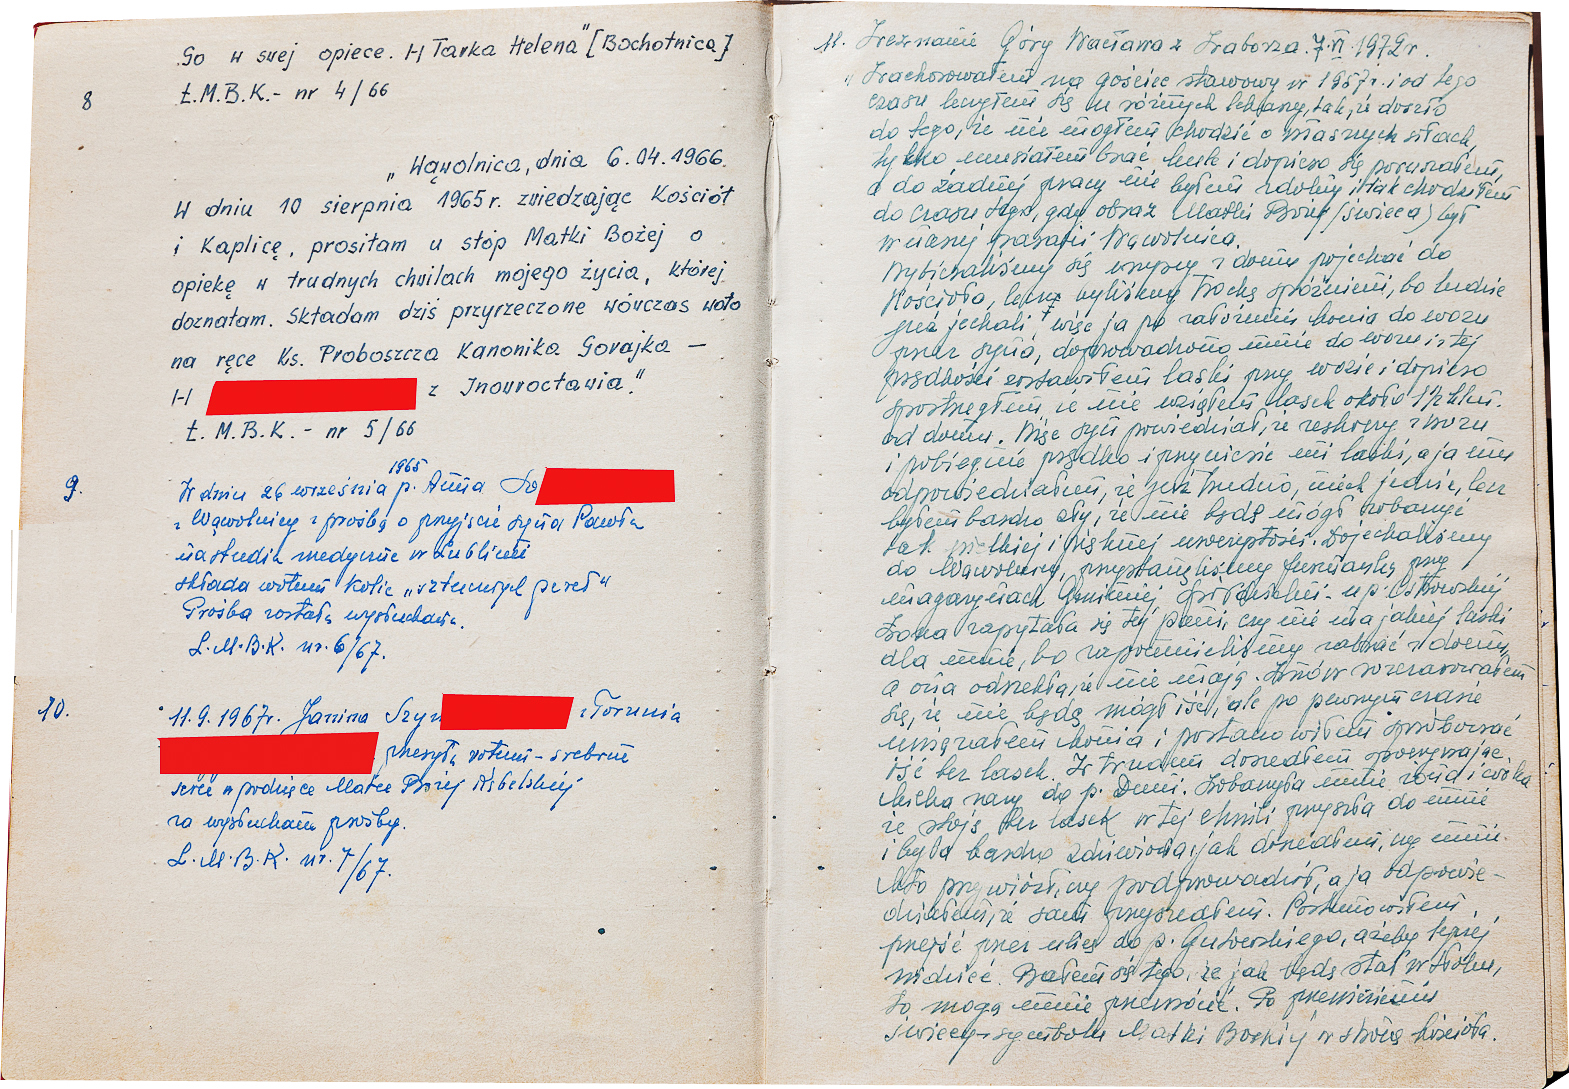 Go w swej opiece. H Tarka Helena" [Bochotnica]
8 Ł.M.B.K.- nr 4/66
„Wąwolnica, dnia 6.04.1966.
W dniu 10 sierpnia 1965r. zwiedzając Kościół
i Kaplicę, prosiłam u stóp Matki Bożej o
opiekę w trudnych chwilach mojego życia, której
doznałam. Składam dziś przyrzeczone wówczas woto
na ręce Ks. Proboszcza Kanonika Gorajka —
H z Inowrocławia."
Ł. M.B.K. - nr 5/66
9. W dniu 26 września 1965 p. Anna
z Wąwolnicy z prośbą o przyjście syna Pawła
na studia medyczne w Lublinie
składa wotum kolie „sztucznych pereł"
Prośba została wysłuchana.
Ł.M.B.K. nr. 6/67.
10. 11.9.1967r. Janina Szyn z Torunia
przesyła wotum - srebrne
serce w podzięce Matce Bożej Kębelskiej
za wysłuchanie prośby.
Ł.M.B.K. nr. 7/67.
11. Zeznanie Góry Wacława z Zraborza. 7.VI.1972r.
„Zachorowałem na gościec stawowy w 1957r. i od tego
czasu leczyłem się u różnych lekarzy, tak, że doszło
do tego, że nie mogłem chodzić o własnych siłach,
tylko musiałem brać laski i dopiero się poruszałem,
a do żadnej pracy nie byłem zdolny i tak chodziłem
do czasu tego, gdy obraz Matki Bożej (świeca) był
w naszej parafii Wąwolnica.
Wybieraliśmy się wszyscy z domu pojechać do
Kościoła, lecz byliśmy trochę spóźnieni, bo ludzie
już jechali, więc ja po założeniu konia do wozu
przez syna, doprowadzono mnie do wozu i z tej
prędkości zostawiłem laski przy wozie i dopiero
spostrzegłem, że nie wziąłem lasek około 1/2 klm.
od domu. Więc syn powiedział, że zeskoczy z wozu
i pobiegnie prędko i przyniesie mi laski, a ja mu
odpowiedziałem, że już trudno, niech jedzie, lecz
byłem bardzo zły, że nie będę mógł zobaczyć
tak wielkiej i pięknej uroczystości. Dojechaliśmy
do Wąwolnicy, przystanęliśmy furmanką przy
magazynach Gminnej Spółdzielni - u p. Ostrowskiej
Żona zapytała się tej pani, czy nie ma jakiej laski
dla mnie, bo zapomnieliśmy zabrać z domu,
a ona odrzekła, że nie mają. Znów rozczarowałem
się, że nie będę mógł iść, ale po pewnym czasie
uwiązałem konia i postanowiłem spróbować
iść bez lasek. Z trudem doszedłem spoczywając
kilka razy do p. Duni. Zobaczyła mnie żona i córka
że stoję bez lasek w tej chwili przyszła do mnie
i była bardzo zdziwiona, jak doszedłem, czy mnie
kto przywiózł, czy podprowadził, a ja odpowie-
działem, że sam przyszedłem. Postanowiłem
przejść przez ulicę do p. Gutowskiego, ażeby lepiej
widzieć. Bałem się tego, że jak będę stał w tłoku,
to mogą mnie przewrócić. Po przeniesieniu
świecy - symbolu Matki Boskiej w stronę kościoła.